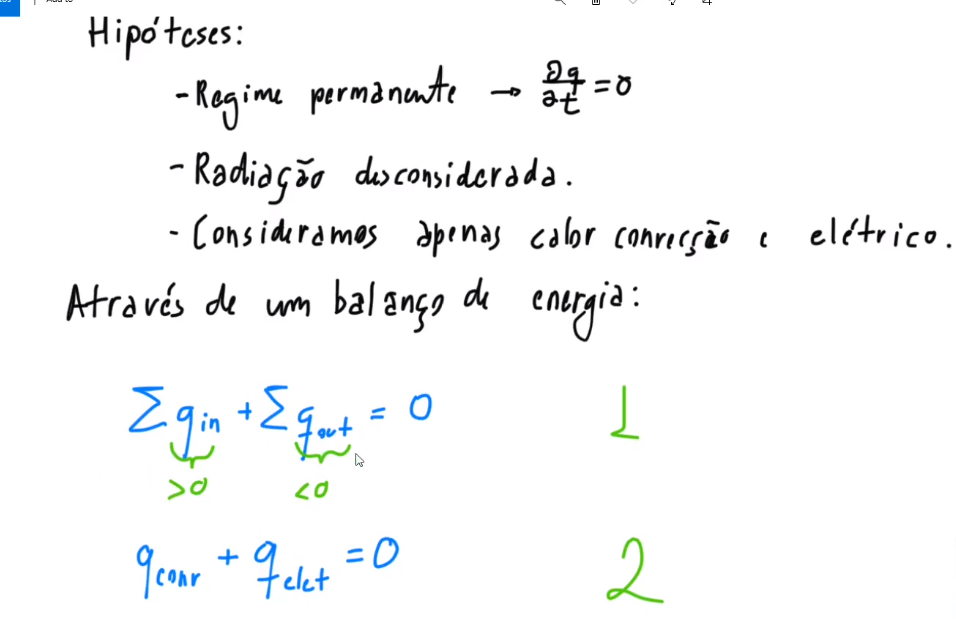 Hipóteses:
- Regime permanente → ∂q/∂t = 0
- Radiação desconsiderada.
- Consideramos apenas calor convecção e elétrico.
Através de um balanço de energia:
Σ q_in + Σ q_out = 0 1
>0 <0
q_conv + q_elet = 0 2